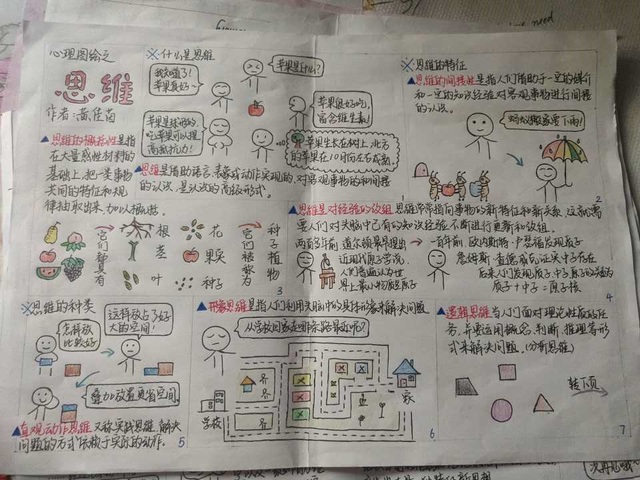 心理图绘之
思维
作者:黄
※什么是思维
我知道了!
苹果真好
苹果是什么?
苹果很好吃,
富含维生素!
吃苹果可以提
高抵抗力!
苹果生长在树上,北方
的苹果在10月份左右成熟
▲思维是借助语言、表象或动作实现的、对客观事物的概括和间接
的认识,是认识的高级形式。
▲思维的概括性是指
在大量感性材料的
基础上,把一类事物
共同的特征和规
律抽取出来,加以概括。
它们都具有
根
茎
叶
花
果实
种子
它们被称为
种子植物
3
※思维的特征
▲思维的间接性是指人们借助于一定的媒介
和一定的知识经验对客观事物进行间接
的认识。
蚂蚁搬家要下雨!
2
▲思维是对经验的改组
思维常常指向事物的新特征和新关系,这就需
要人们对头脑中已有的知识经验不断进行更新和改组。
近现代原子学说
人们普遍认为世
界上最小物质是原子
后来人们发现原子中有
4
※思维的种类
怎样放
比较好
这样放占了好
大的空间!
叠加放置更省空间
▲直观动作思维 又称实践思维,解决
问题的方式依赖于实际的动作。
5
形象思维是指人们利用头脑中的具体形象来解决问题
从学校回家走哪条路最近呢?
学校
家
6
▲逻辑思维 当人们面对理论性质的任
务,并要运用概念、判断、推理等形
式来解决问题。(分析思维)
转下页
7